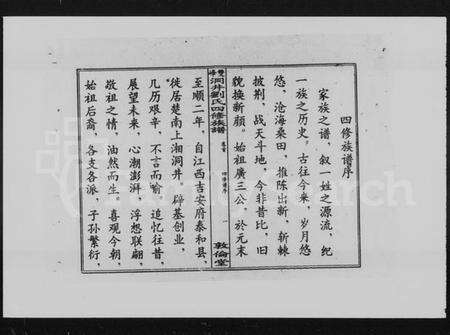 四修族谱序
家族之谱，叙一姓之源流，纪
一族之历史。古往今来，岁月悠
悠，沧海桑田，推陈出新，斩棘
披荆，战天斗地，今非昔比，旧
貌换新颜。始祖廣三公，於元末
洞井劉氏四修族譜
卷首
一
敦倫堂
至顺二年，自江西吉安府泰和县，
徙居楚南上湘洞井，辟基创业，
几历艰辛，不言而喻，追忆往昔，
展望未来，心潮澎湃，浮想联翩，
敬祖之情，油然而生，喜观今朝，
始祖后裔，各支各派，子孙繁衍，